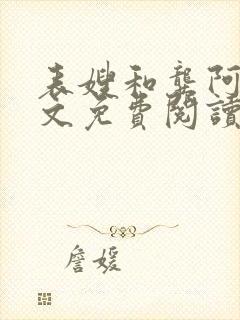 表嫂和龚阿
文免費閱讀
詹媛